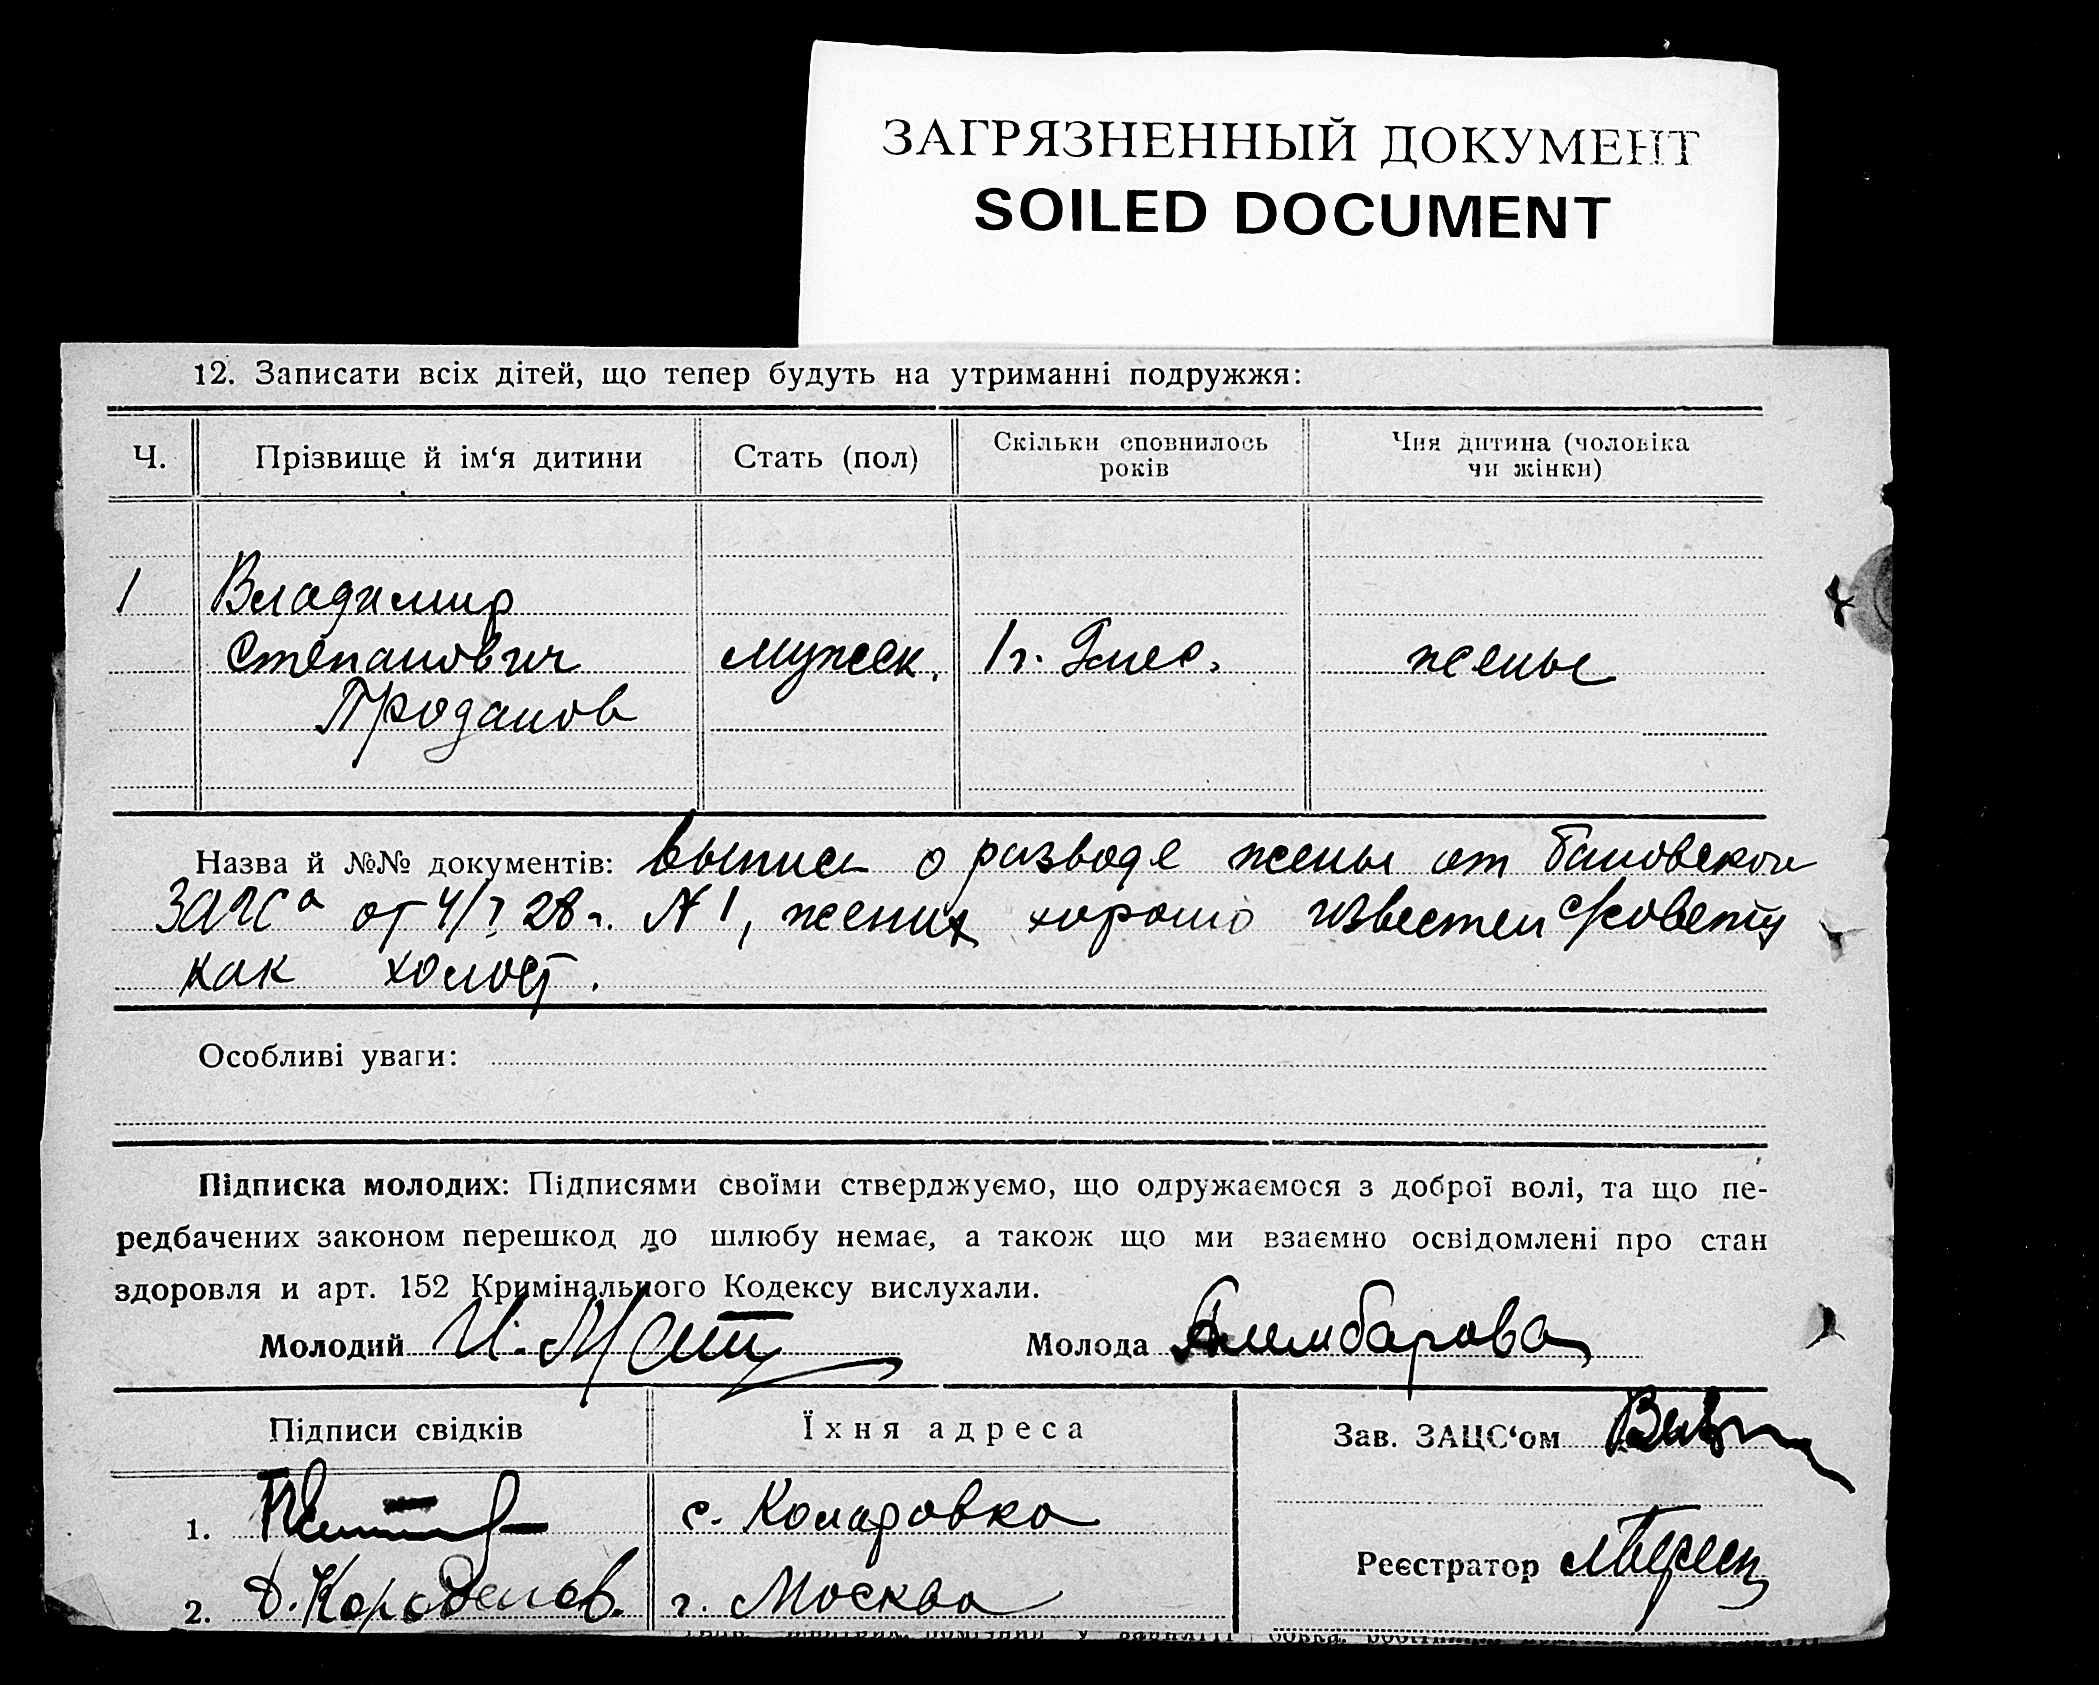 ЗАГРЯЗНЕННЫЙ ДОКУМЕНТ
SOILED DOCUMENT
12. Записати всіх дітей, що тепер будуть на утриманні подружжя:
Ч. Прізвище й ім‘я дитини Стать (пол) Скільки сповнилось років Чия дитина (чоловіка чи жінки)
1 Владимир
Степанович мужск. 1 г. жены
Проданов
Назва й №№ документів: выпись о разводе жены от
ЗАГСа от 28 г. N 1, жених хорошо известен с/совету
как холост.
Особливі уваги:
Підписка молодих: Підписями своїми стверджуємо, що одружаємося з доброї волі, та що пе-
редбачених законом перешкод до шлюбу немає, а також що ми взаємно освідомлені про стан
здоровля и арт. 152 Кримінального Кодексу вислухали.
Молодий Молода
Підписи свідків Їхня адреса Зав. ЗАЦС‘ом
1. с. Коларовка
Реєстратор
2. г. Москва